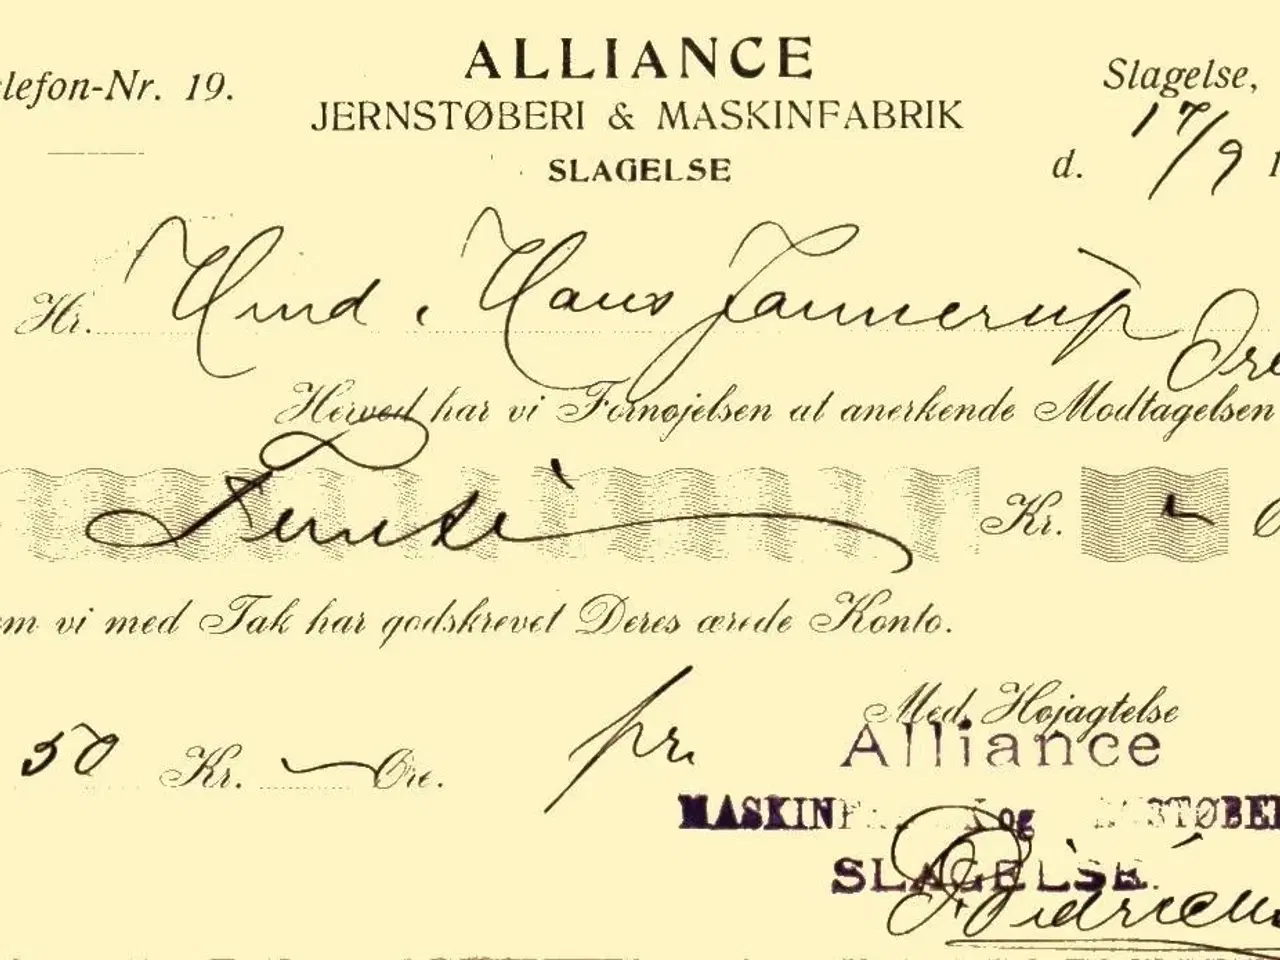 ALLIANCE
lefon-Nr. 19.
Slagelse,
JERNSTØBERI & MASKINFABRIK
d. 17/9 1
SLAGELSE
Hr. Hmd. Hans Jannerup
Herved har vi Fornøjelsen at anerkende Modtagelsen
Kr.
m vi med Tak har godskrevet Deres ærede Konto.
Med Højagtelse
50 Kr. Øre. pr.
Alliance
MASKINF og STØBE
SLAGELSE.